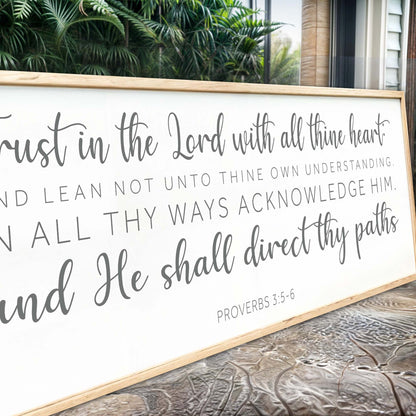 Trust in the Lord with all thine heart.
AND LEAN NOT UNTO THINE OWN UNDERSTANDING.
IN ALL THY WAYS ACKNOWLEDGE HIM.
and He shall direct thy paths
PROVERBS 3:5-6